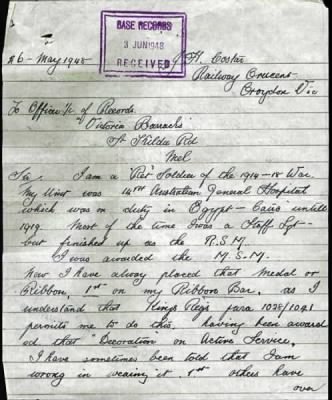 BASE RECORDS
3 JUN 1948
RECEIVED
26-May-1948
J. H. Coster
Railway Crescent
Croydon Vic
To Officer i/c of Records.
Victoria Barracks
St Kilda Rd
Mel
Sir, I am a "Ret" Soldier of the 1914-18 War.
My Unit was 14th Australian General Hospital
which was on duty in Egypt - Cairo untill
1919 Most of the time I was a Staff Sgt -
but finished up as the R.S.M.
I was awarded the M.S.M.
Now I have alway placed that Medal or
Ribbon, 1st on my Ribbon Bar, as I
understand that Kings Regs para 1028/1041
permits me to do this, having been award
ed that "Decoration" on Active Service,
I have sometimes been told that I am
wrong in wearing it 1st others have
over